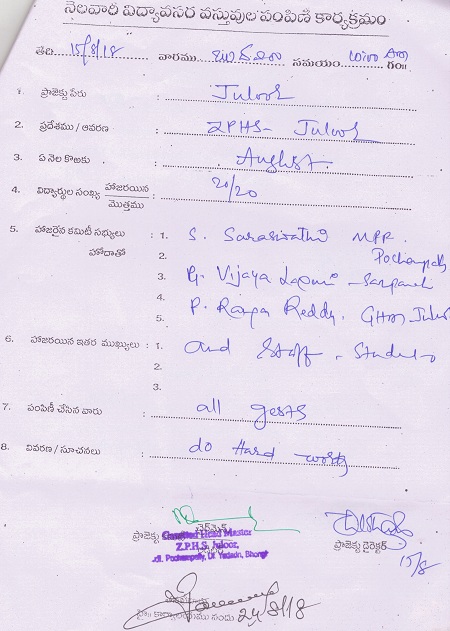 నెలవారీ విద్యావసర వస్తువుల పంపిణీ కార్యక్రమం
తేది 15/8/18 వారము బుధవారం సమయం 10:00 గం॥
1. ప్రాజెక్టు పేరు : Juloor
2. ప్రదేశము / ఆవరణ : ZPHS - Juloor
3. ఏ నెల కొఱకు : August.
4. విద్యార్థుల సంఖ్య హాజరయిన / మొత్తము : 20/20
5. హాజరైన కమిటీ సభ్యులు : 1. S. Saraswathi MPP.
హోదాతో 2. Pochampally
3. G. Vijaya Laxmi - Sarpanch
4. P. Ranga Reddy. GHM Juloor
5.
6. హాజరయిన ఇతర ముఖ్యులు : 1. and Staff - Students
2.
3.
7. పంపిణీ చేసిన వారు : all gests
8. వివరణ / సూచనలు : do Hard work
ప్రాజెక్టు ఛైర్మైన్ ప్రాజెక్టు డైరెక్టర్
Gazetted Head Master
Z.P.H.S. Juloor,
Pochampally, Dt. Yadadri, Bhongir
15/8
కార్యాలయము నందు 24/8/18